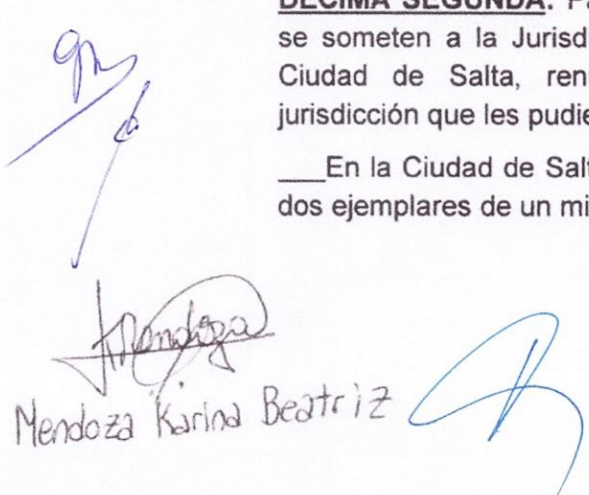 DÉCIMA SEGUNDA: Pa
se someten a la Jurisdi
Ciudad de Salta, ren
jurisdicción que les pudie
___En la Ciudad de Salt
dos ejemplares de un mi
Mendoza
Mendoza Karina Beatriz